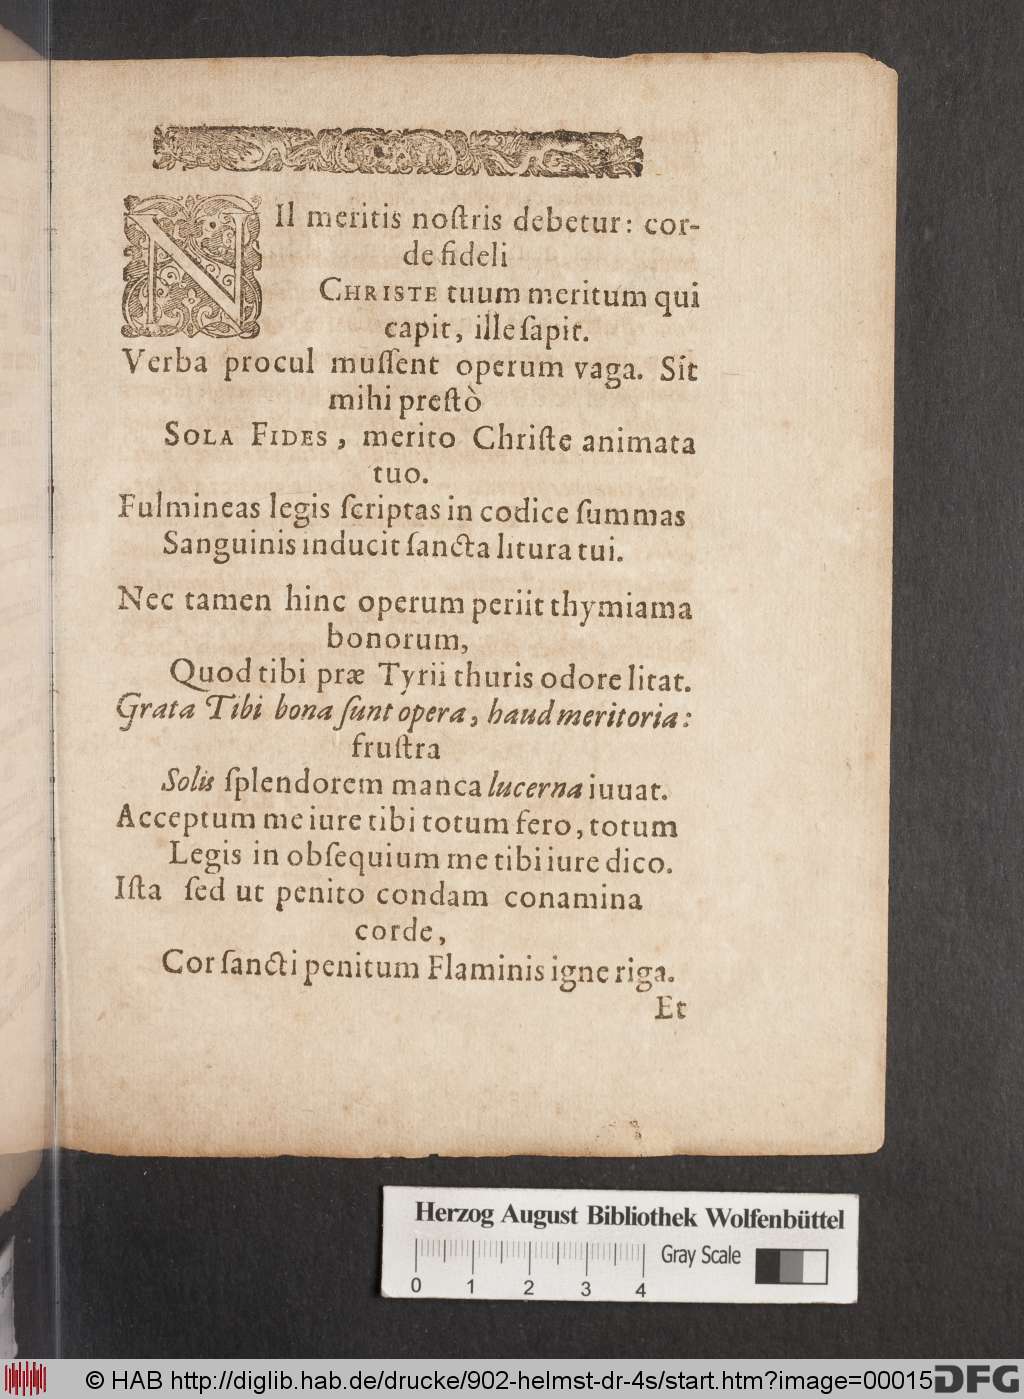 NIl meritis noſtris debetur: cor-
de fideli
CHRISTE tuum meritum qui
capit, ille ſapit.
Verba procul muſſent operum vaga. Sit
mihi preſtò
SOLA FIDES, merito Chriſte animata
tuo.
Fulmineas legis ſcriptas in codice ſummas
Sanguinis inducit ſancta litura tui.
Nec tamen hinc operum periit thymiama
bonorum,
Quod tibi præ Tyrii thuris odore litat.
Grata Tibi bona ſunt opera, haud meritoria:
fruſtra
Solis ſplendorem manca lucerna iuuat.
Acceptum me iure tibi totum fero, totum
Legis in obſequium me tibi iure dico.
Iſta ſed ut penito condam conamina
corde,
Cor ſancti penitum Flaminis igne riga.
Et
Herzog August Bibliothek Wolfenbüttel
Gray Scale
0 1 2 3 4
© HAB http://diglib.hab.de/drucke/902-helmst-dr-4s/start.htm?image=00015
DFG